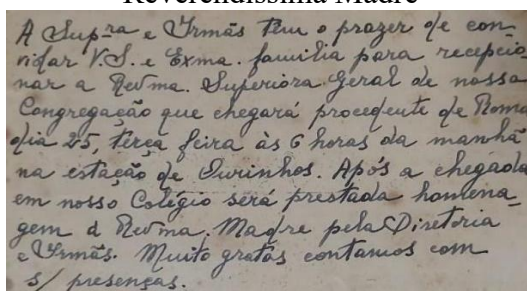 Reverendíssima Madre
A Sup.ra e Irmãs têm o prazer de con-
vidar V.S. e Exma. familia para recepcio-
nar a Revma. Superiora Geral de nossa
Congregação que chegará procedente de Roma
dia 25, terça feira às 6 horas da manhã
na estação de Ourinhos. Após a chegada
em nosso Colégio será prestada homena-
gem à Revma. Madre pela Diretoria
e Irmãs. Muito gratas contamos com
s/ presenças.